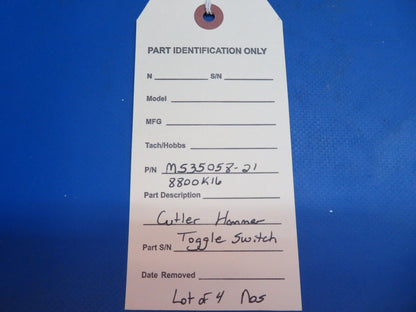 PART IDENTIFICATION ONLY
N S/N
Model
MFG
Tach/Hobbs
P/N MS35058-21
8800K16
Part Description
Cutler Hammer
Toggle Switch
Part S/N
Date Removed
Lot of 4 Nos